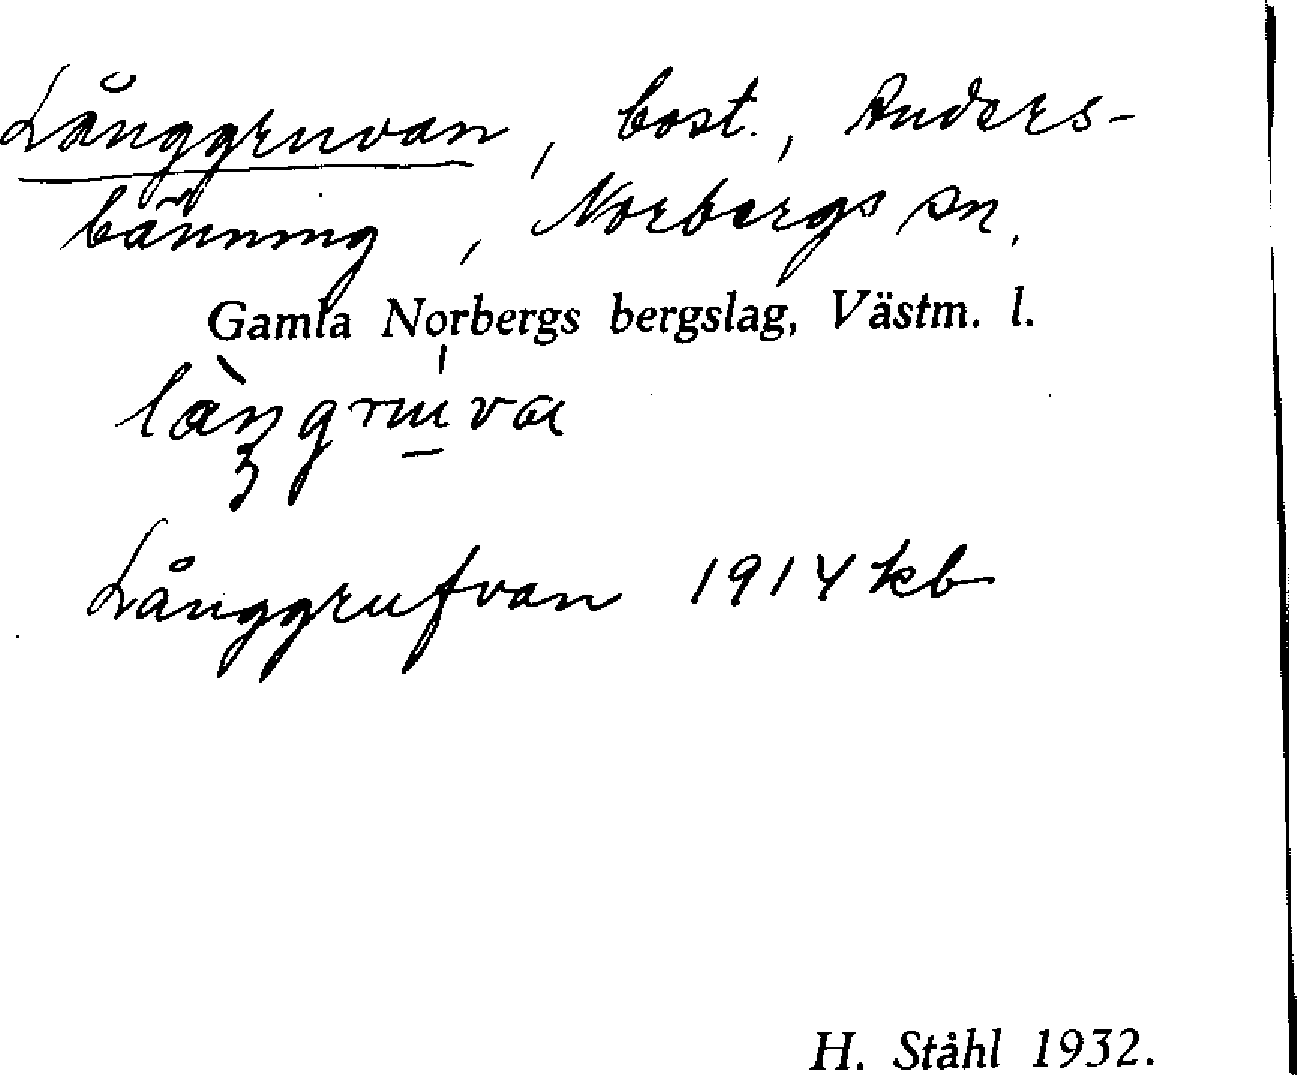 Långgruvan, bost., Anders-
bänning, Norbergs sn.
Gamla Norbergs bergslag, Västm. l.
Långgrufvan 1914 kb
H. Ståhl 1932.